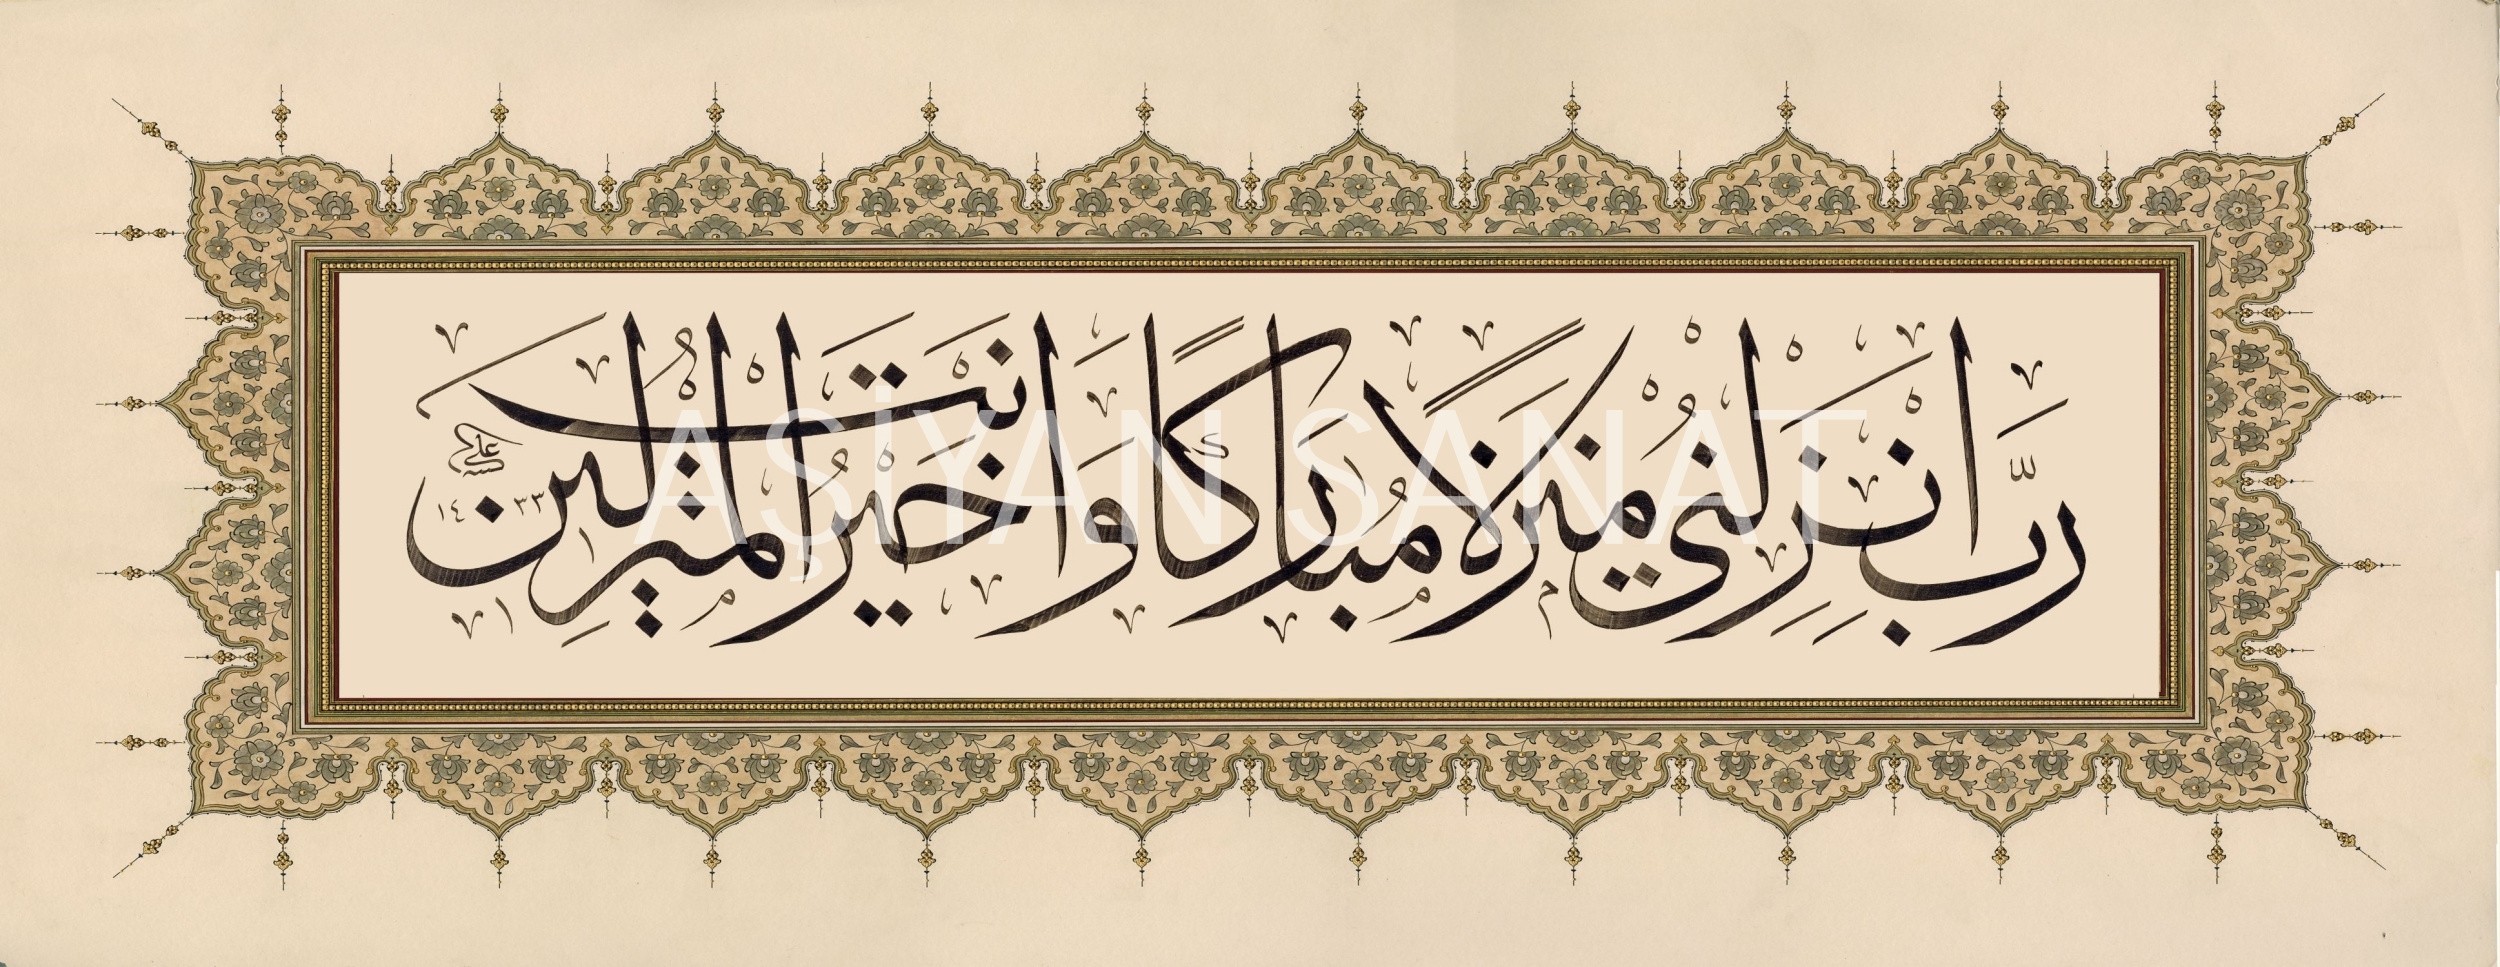 رَبِّ اَنْزِلْنٖى مُنْزَلًا مُبَارَكًا وَاَنْتَ خَيْرُ الْمُنْزِلٖينَ
كتبه علي
١٤٣٣
AŞİYAN SANAT